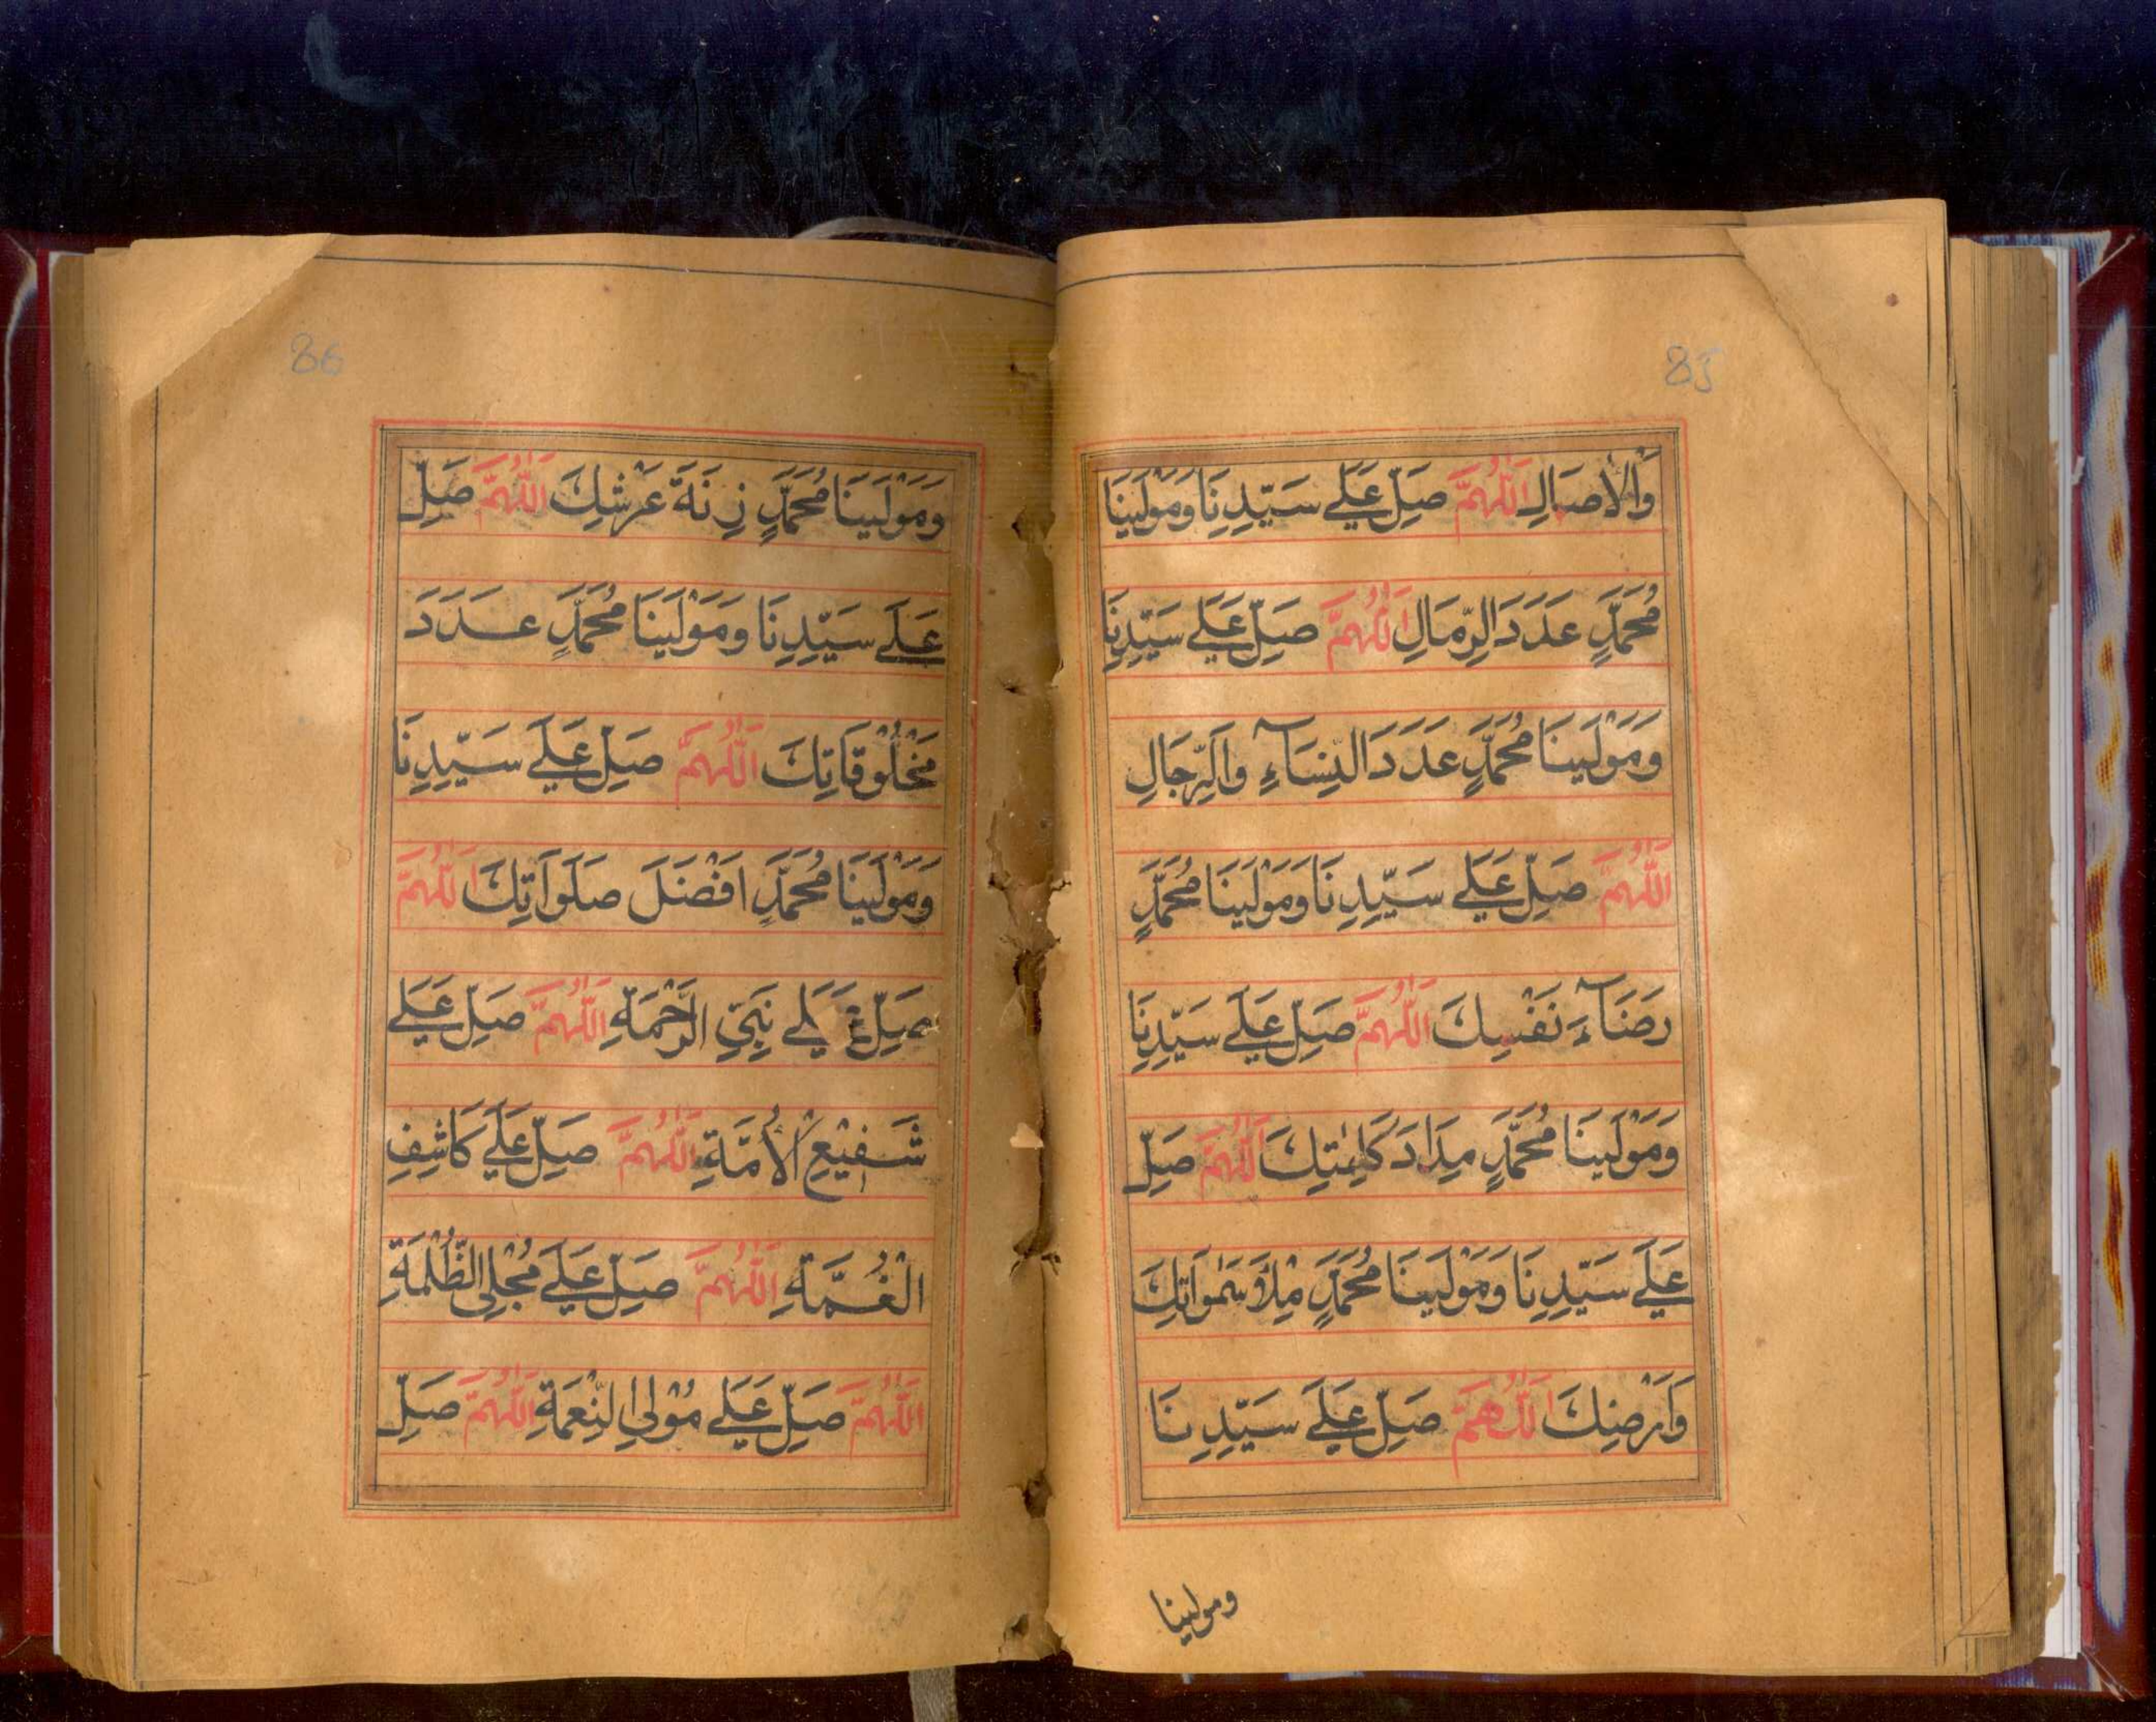 85
وَالْاٰصَالِ اَللّٰهُمَّ صَلِّ عَلٰے سَيِّدِنَا وَمَوْلٰينَا
مُحَمَّدٍ عَدَدَ الرِّمَالِ اَللّٰهُمَّ صَلِّ عَلٰے سَيِّدِنَا
وَمَوْلٰينَا مُحَمَّدٍ عَدَدَ النِّسَآءِ وَالرِّجَالِ
اَللّٰهُمَّ صَلِّ عَلٰے سَيِّدِنَا وَمَوْلٰينَا مُحَمَّدٍ
رِضَآءَ نَفْسِكَ اَللّٰهُمَّ صَلِّ عَلٰے سَيِّدِنَا
وَمَوْلٰينَا مُحَمَّدٍ مِدَادَ كَلِمٰتِكَ اَللّٰهُمَّ صَلِّ
عَلٰے سَيِّدِنَا وَمَوْلٰينَا مُحَمَّدٍ مِلْأَ سَمٰوَاتِكَ
وَاَرْضِكَ اَللّٰهُمَّ صَلِّ عَلٰے سَيِّدِنَا
ومولينا
86
وَمَوْلٰينَا مُحَمَّدٍ زِنَةَ عَرْشِكَ اَللّٰهُمَّ صَلِّ
عَلٰے سَيِّدِنَا وَمَوْلٰينَا مُحَمَّدٍ عَدَدَ
مَخْلُوْقَاتِكَ اَللّٰهُمَّ صَلِّ عَلٰے سَيِّدِنَا
وَمَوْلٰينَا مُحَمَّدٍ اَفْضَلَ صَلَوَاتِكَ اَللّٰهُمَّ
صَلِّ عَلٰے نَبِيِّ الرَّحْمَةِ اَللّٰهُمَّ صَلِّ عَلٰے
شَفِيْعِ الْأُمَّةِ اَللّٰهُمَّ صَلِّ عَلٰے كَاشِفِ
الْغُمَّةِ اَللّٰهُمَّ صَلِّ عَلٰے مُجْلِي الظُّلْمَةِ
اَللّٰهُمَّ صَلِّ عَلٰے مُوْلِي النِّعْمَةِ اَللّٰهُمَّ صَلِّ